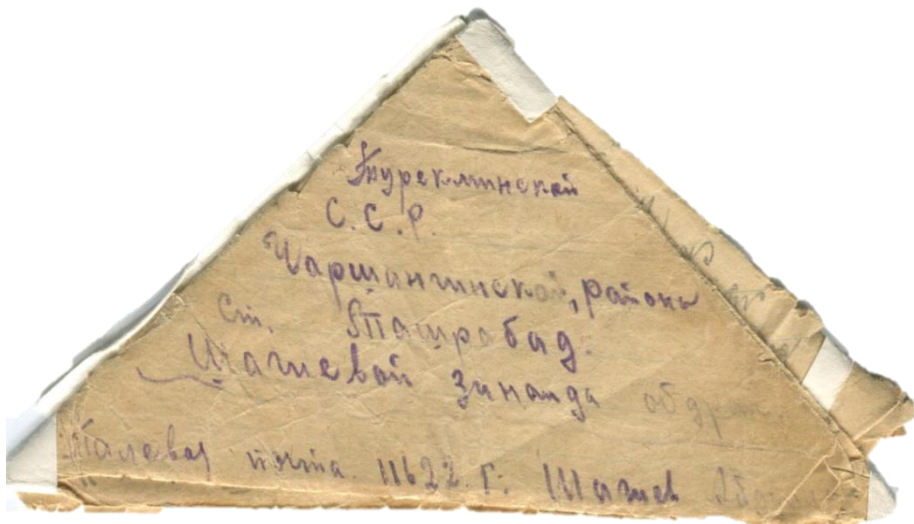 Туреклинской
С.С.Р.
Чаршангинской, районы
Ст. Ташрабад.
Шагиевой Зинаида
почта. 11622. Г. Шагиев